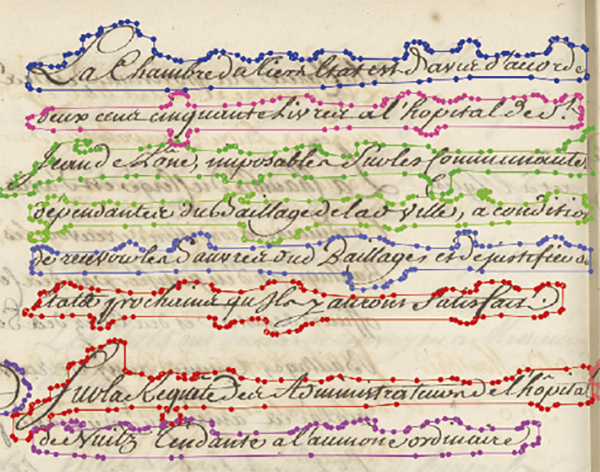 La Chambre du tiers Etat est d'avis d'acorder
deux cens cinquante livres a l'hopital de St.
Jean de Lône, imposables sur les Communautes
dépendantes du Bailliage de lad ville, a condition
de recevoir les pauvres dud Bailliages et de justifier au
Etats prochains qu'Ils y auront satisfait.
Sur la Requête des Administrateurs de l'hôpital
de Nuitz Tendante a l'aumone ordinaire